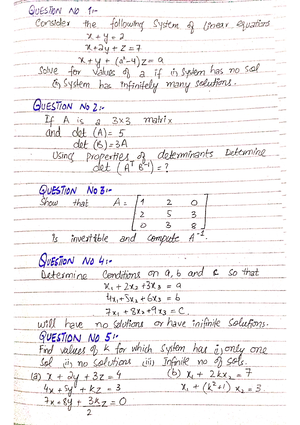 QUESTION NO 1:-
Consider the following System of linear equations
x + y = 2
x + 2y + z = 7
x + y + (a²-4) z = a
Solve for values of a if (i) System has no Sol
(ii) System has infinitely many solutions.
QUESTION NO 2:-
If A is a 3x3 matrix
and det (A) = 5
det (B) = 3A
Using Properties of determinants Determine
det (Aᵀ B⁻¹) = ?
QUESTION NO 3:-
Show that A = [1 2 0
2 5 3
0 3 8]
is invertible and compute A⁻¹.
QUESTION NO 4:-
Determine Conditions on a, b and c so that
x₁ + 2x₂ + 3x₃ = a
4x₁ + 5x₂ + 6x₃ = b
7x₁ + 8x₂ + 9x₃ = C
will have no solutions or have inifinite Solutions.
QUESTION NO 5:-
Find values of k for which System has (i) only one
Sol (ii) no Solutions (iii) Infinite no of Sols.
(a) x + 2y + 3z = 4 (b) x₁ + 2kx₂ = 7
4x + 5y + kz = 3 x₁ + (k²+1) x₂ = 3
7x + 8y + 3kz = 0
2